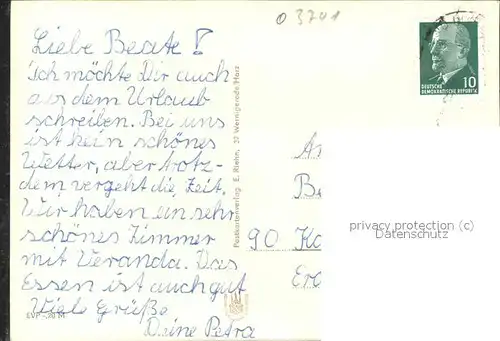 0 3701
Liebe Beate!
Ich möchte Dir auch
aus dem Urlaub
schreiben. Bei uns
ist kein schönes
Wetter, aber trotz-
dem vergeht die Zeit.
Wir haben ein sehr
schönes Zimmer
mit Veranda. Das
Essen ist auch gut
Viele Grüße
Deine Petra
EVP -,20 M
Postkartenverlag E. Riehn, 37 Wernigerode/Harz
DEUTSCHE
DEMOKRATISCHE REPUBLIK
10
90
privacy protection (c)
Datenschutz